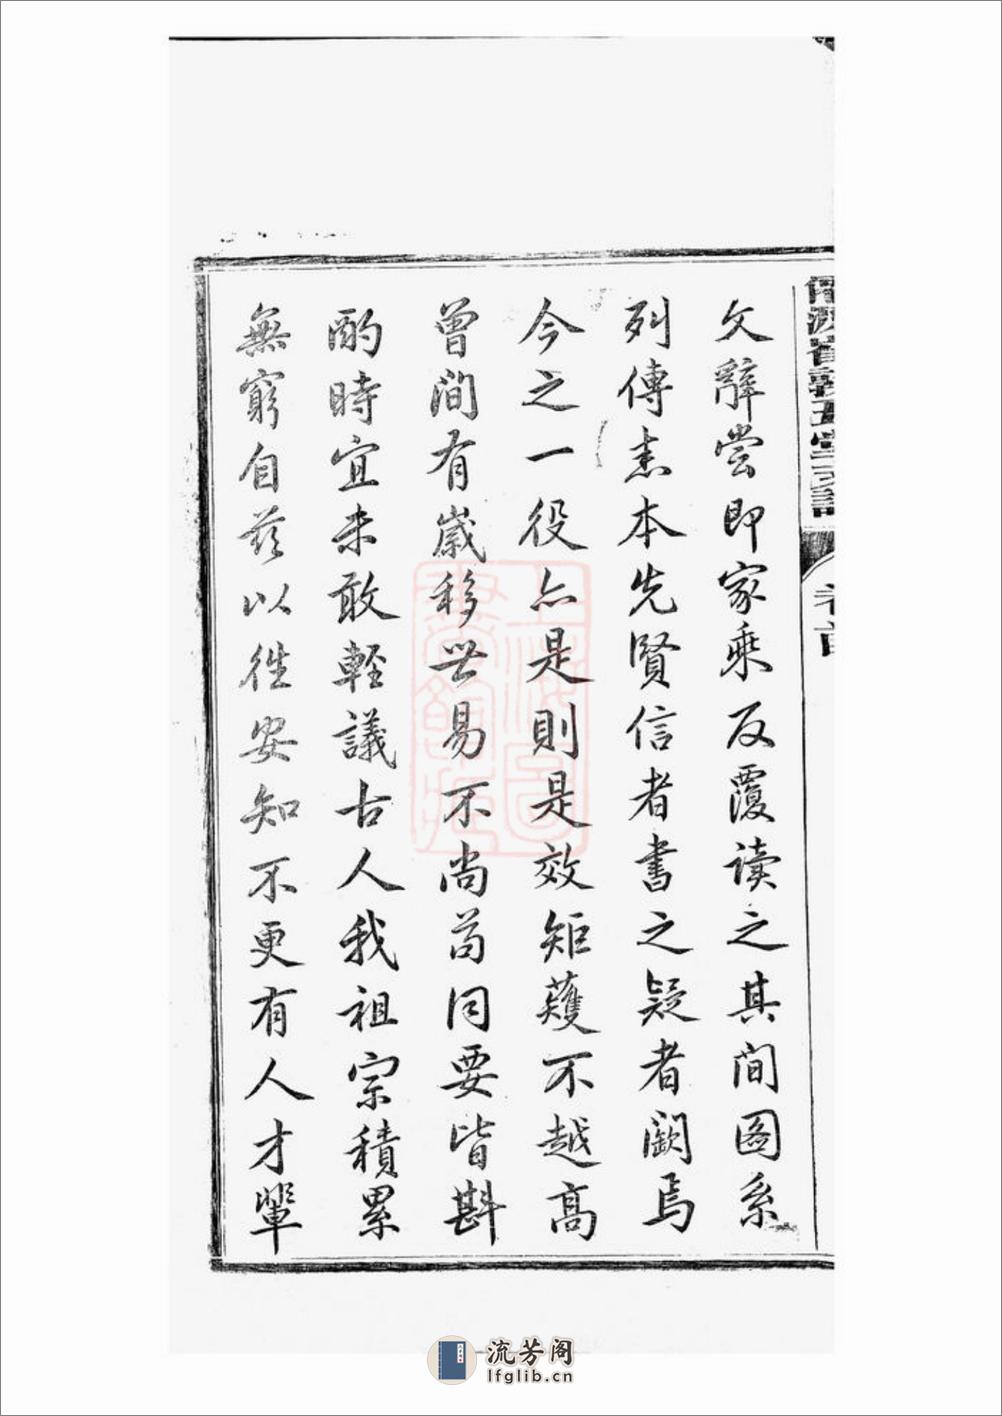 文辭嘗即家乘反覆读之其间图系
列傳悉本先賢信者書之疑者闕焉
今之一役亦是則是效矩蒦不越高
曾间有歳移世易不尚苟同要皆斟
酌時宜未敢輕議古人我祖宗積累
無窮自茲以往安知不更有人才輩
卷首
上海图書館藏
流芳阁
lfglib.cn